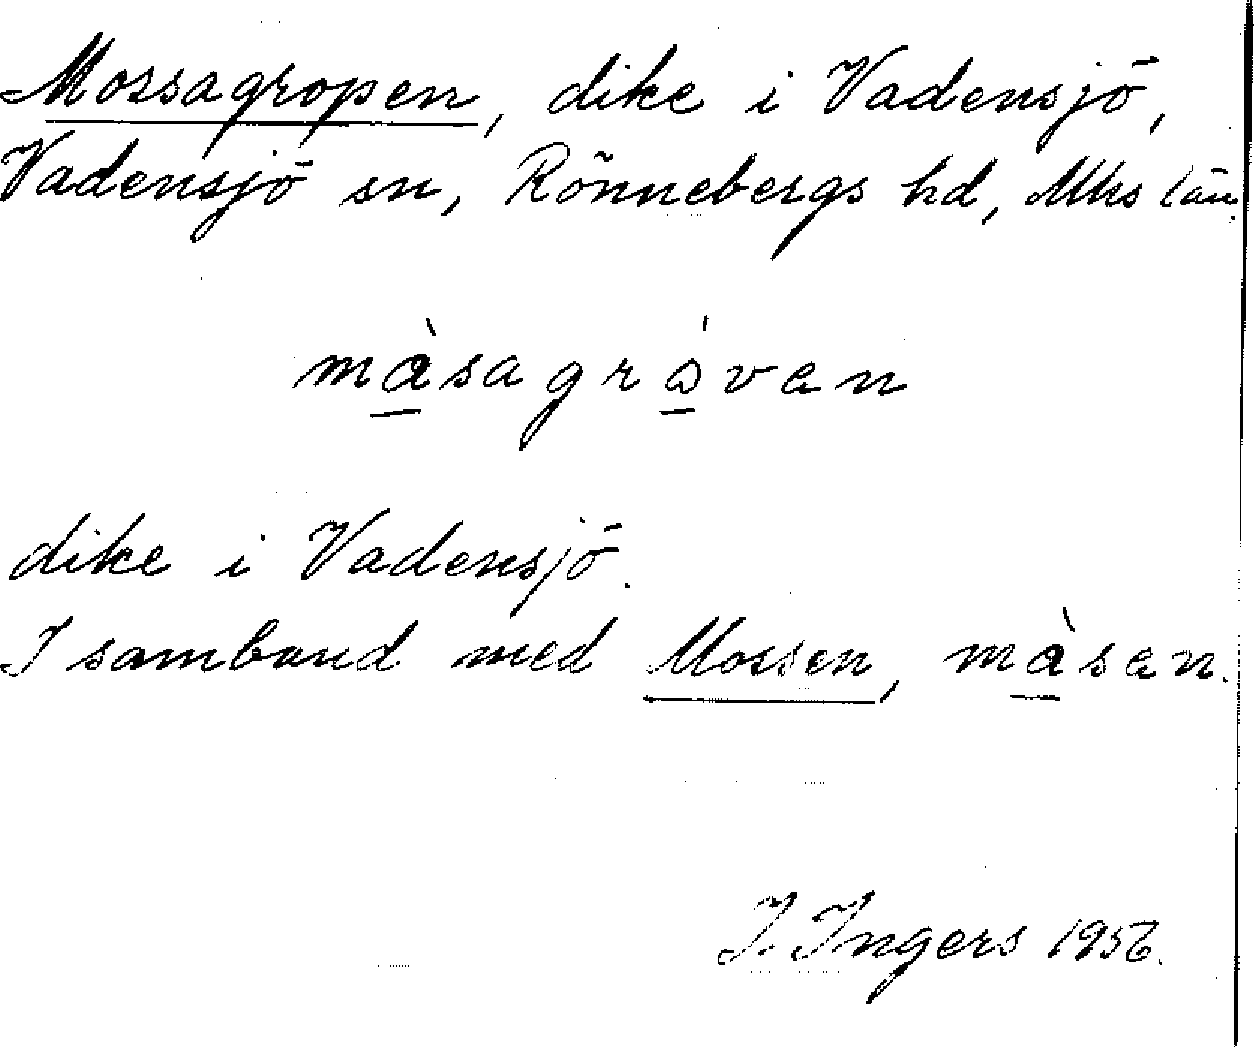 Mossagropen, dike i Vadensjö,
Vadensjö sn, Rönnebergs hd, Mhs län.
màsagråvan
dike i Vadensjö.
I samband med Mossen, màsan.
I. Ingers 1956.